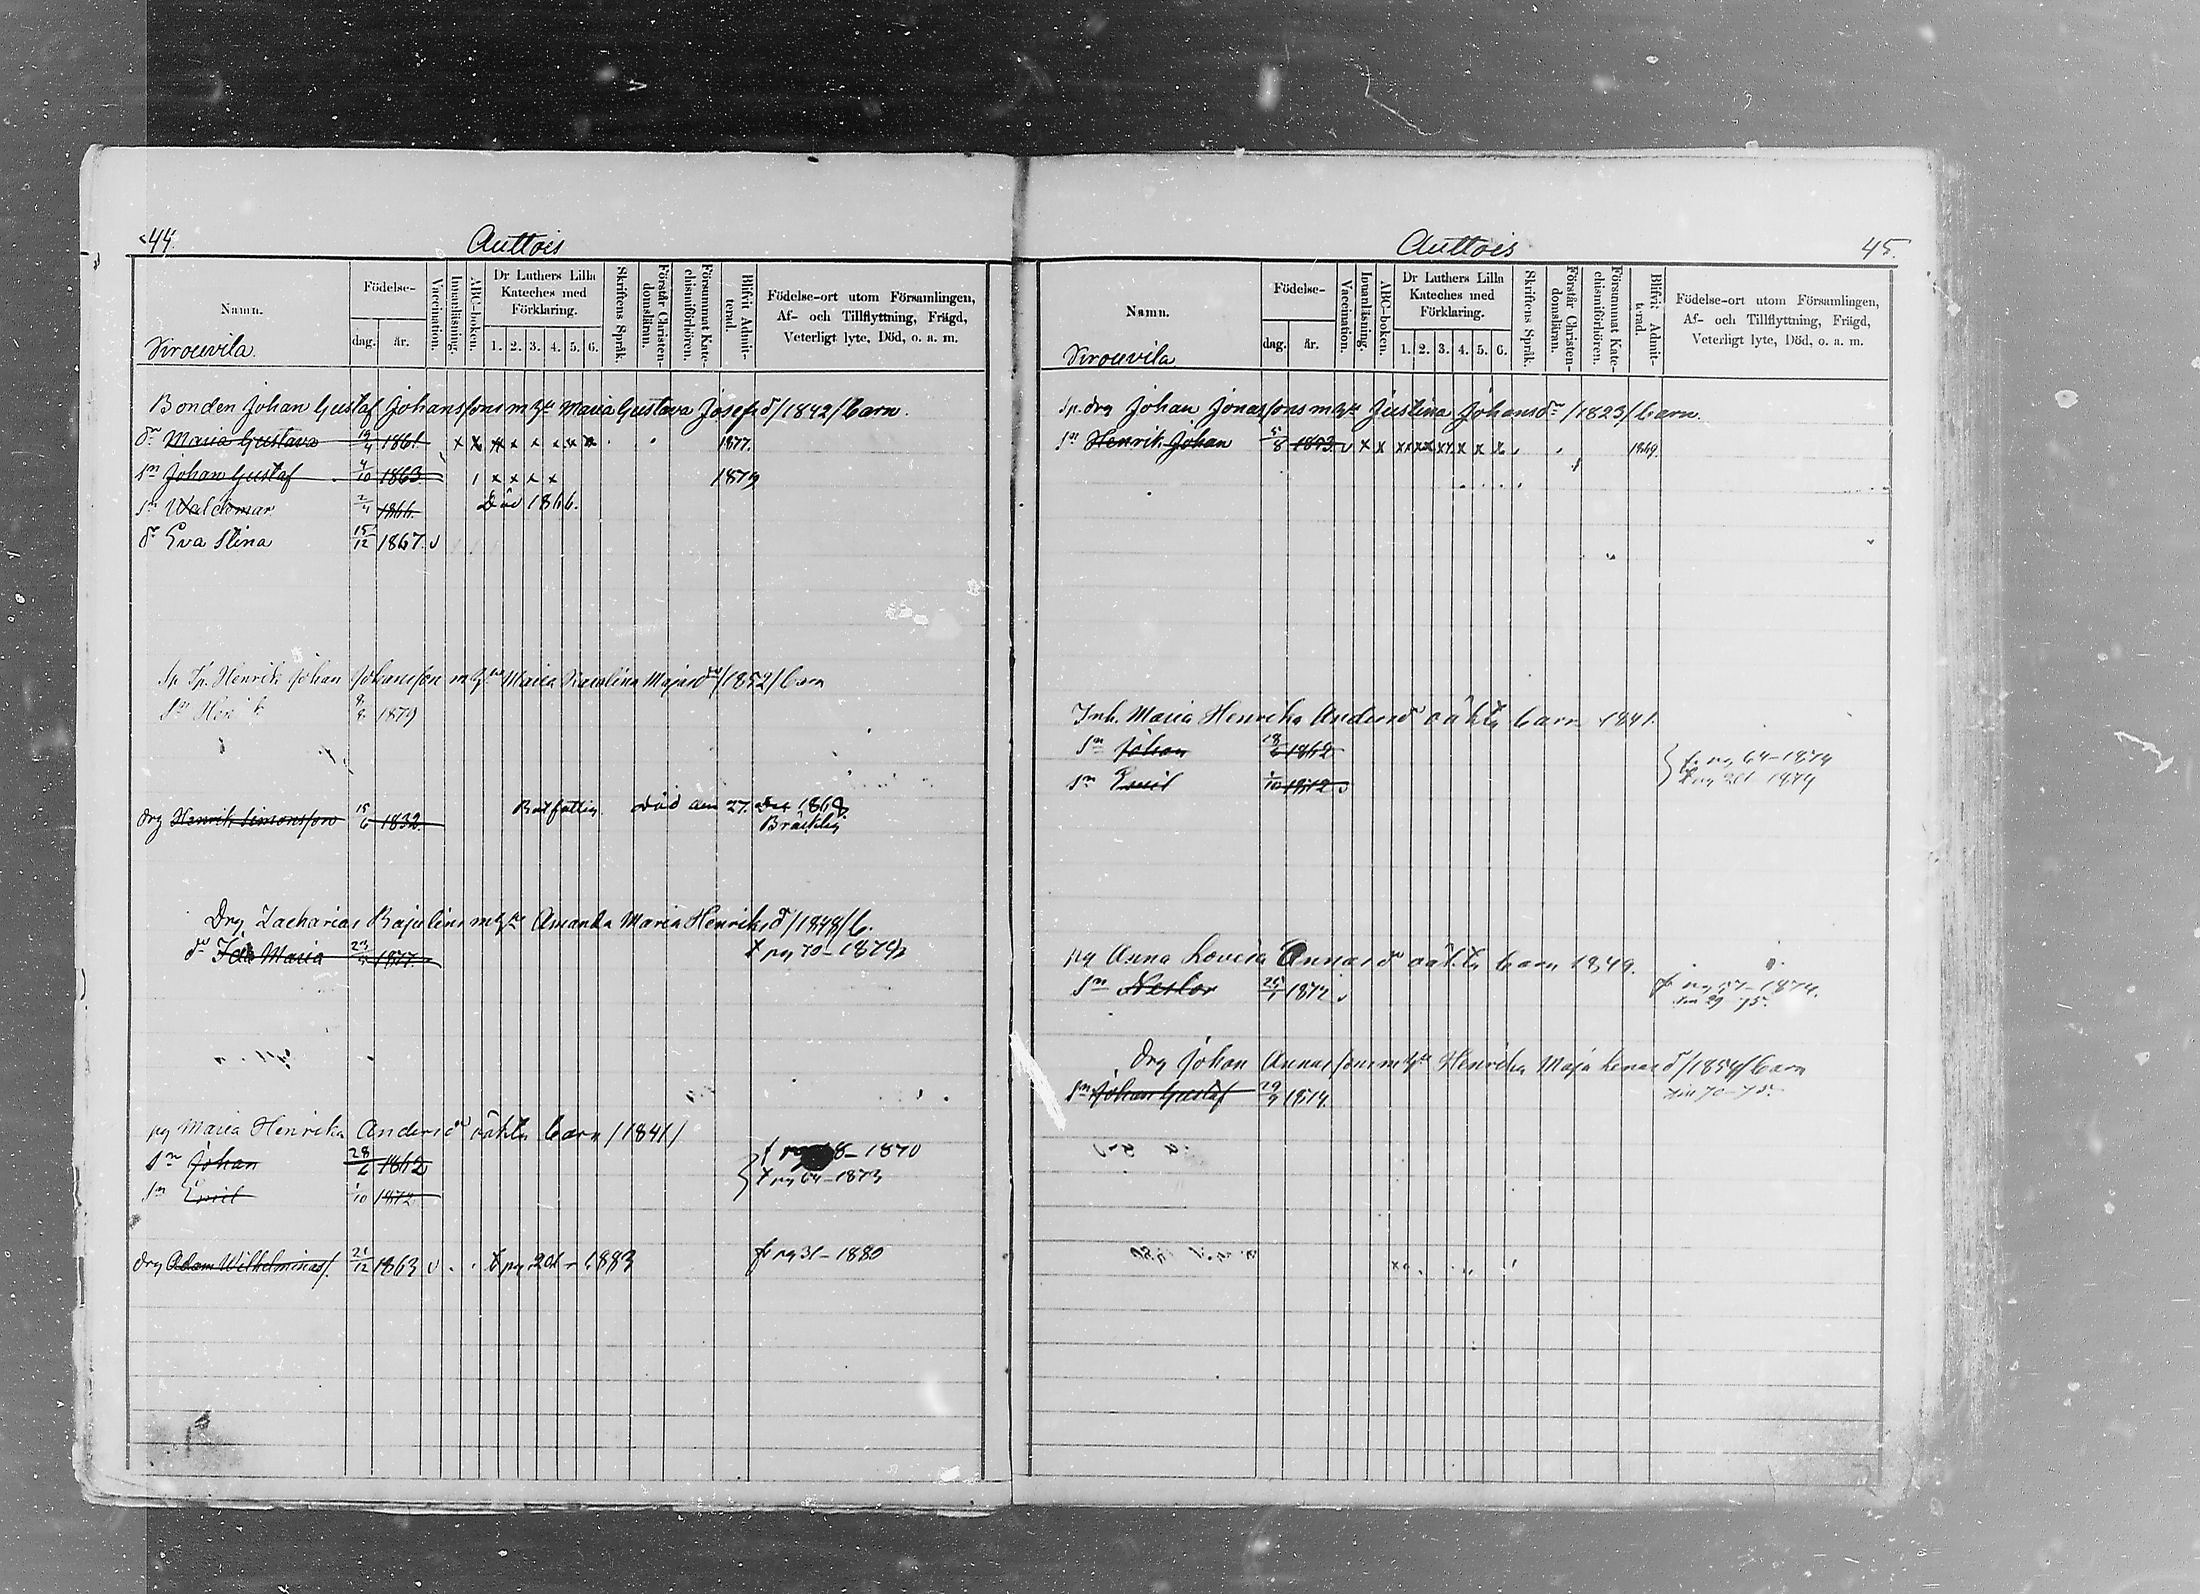 44.
Auttois
Namn.
Födelse-
dag. år.
Vaccination.
Innanläsning.
ABC-boken.
Dr Luthers Lilla
Kateches med
Förklaring.
1. 2. 3. 4. 5. 6.
Skriftens Språk.
Förstår Christen-
domsläran.
Försummat Kate-
chismiförhören.
Blifvit Admit-
terad.
Födelse-ort utom Församlingen,
Af- och Tillflyttning, Frägd,
Veterligt lyte, Död, o. a. m.
Sirouvila.
Bonden Johan Gustaf Johanssons m h:u Maria Gustava Josefsd /1842/ barn.
dr Maria Gustava 19/4 1861. x x x x x x x x 1877.
sn Johan Gustaf 4/10 1863. x x x x 1879
sn Waldemar 2/4 1866. Död 1866.
dr Eva Stina 15/12 1867. v
Sp. Henrik Johan Johansson m h:u Maria Karolina Majasdr /1852/ barn
sn Hen 8/8 1879
drg Henrik Simonsson 15/6 1832. död den 27. 1868.
Drg. Zacharias m h:u Amanda Maria Henriksd /1848/ b.
dr Ida Maria 23/ 1877. t pg 70 - 1879
pg Maria Henrika Andersdr oäkta barn /1841/
sn Johan 28/6 1862 8 - 1870
sn Emil 1/10 1872 t pg 64 - 1873
drg Adam Wilhelminas. 21/12 1863 v t pg 201 - 1883 fr pg 31 - 1880
45.
Auttois
Namn.
Födelse-
dag. år.
Vaccination.
Innanläsning.
ABC-boken.
Dr Luthers Lilla
Kateches med
Förklaring.
1. 2. 3. 4. 5. 6.
Skriftens Språk.
Förstår Christen-
domsläran.
Försummat Kate-
chismiförhören.
Blifvit Admit-
terad.
Födelse-ort utom Församlingen,
Af- och Tillflyttning, Frägd,
Veterligt lyte, Död, o. a. m.
Sirouvila
Sp. drg Johan Jonassons m h:u Justina Johansdr /1823/ barn.
sn Henrik Johan 5/8 1853. v x x x x x x x x 1869.
Inh. Maria Henrika Andersdr oäkta barn 1841.
sn Johan 28/6 1862 fr pg 64 - 1874
sn Emil 1/10 1872 v t pg 201 1879
pg Anna Lovisa Annasdr oäkta barn 1849.
sn Nestor 25/ 1872 v fr pg 57 - 1874.
29 - 75.
Drg Johan Annassons m h:u Henrika Maja Lenasd /1854/ barn
sn Johan Gustaf 29/9 1874. 70 - 75.